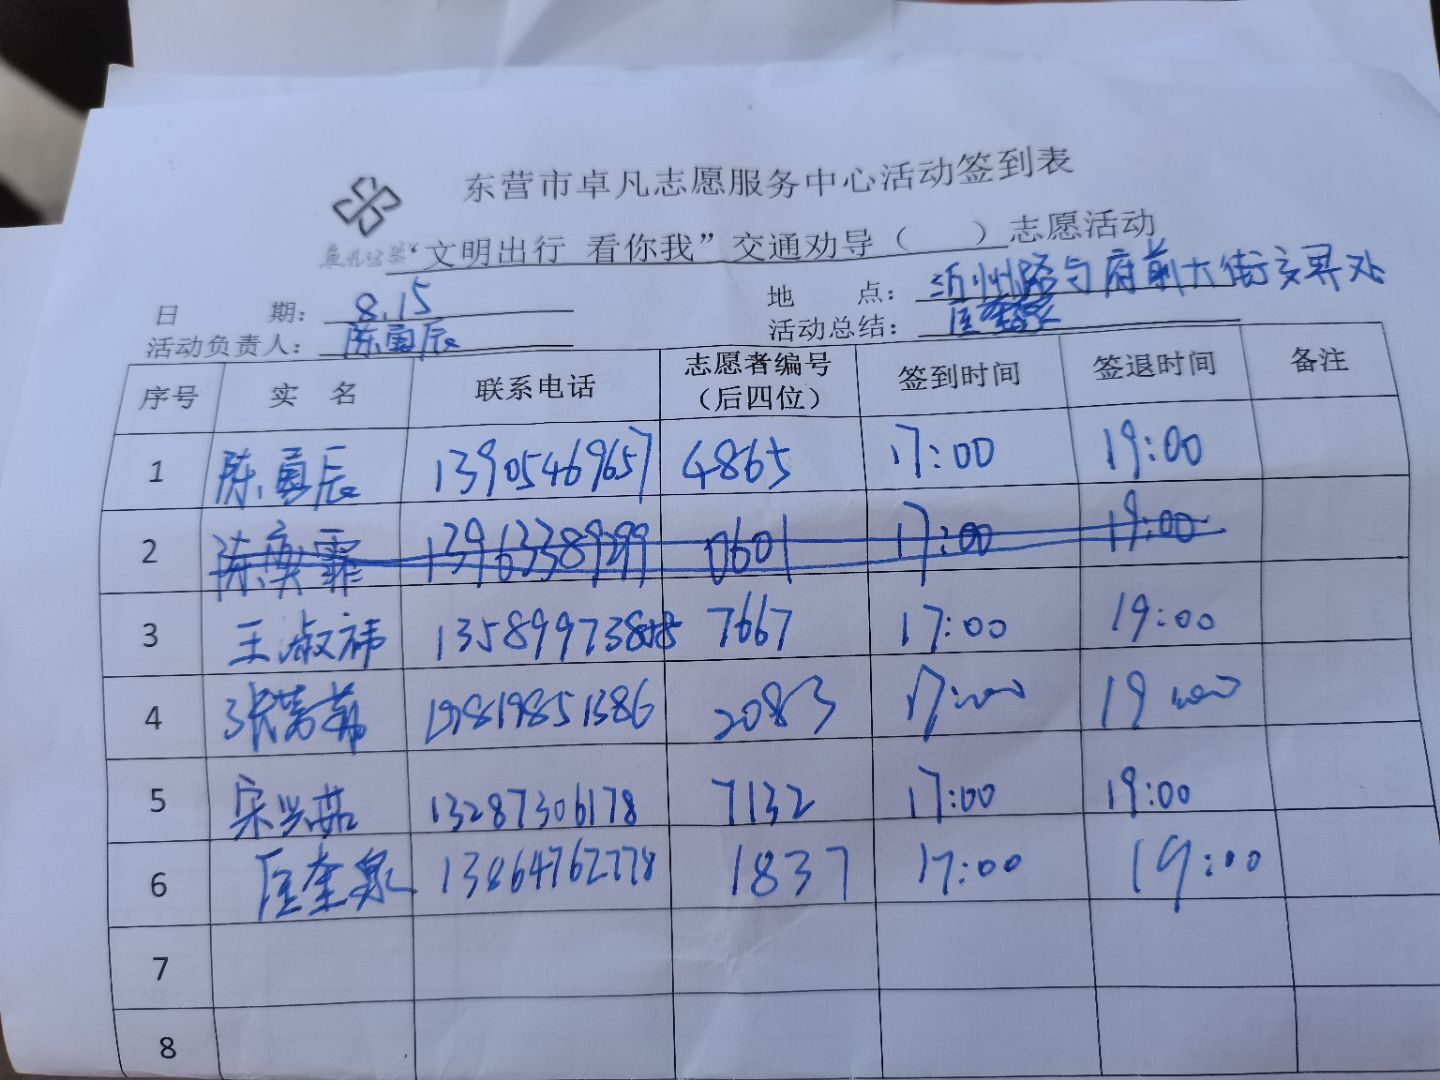 东营市卓凡志愿服务中心活动签到表
“文明出行 看你我”交通劝导（ ）志愿活动
日 期： 8.15 地 点： 沂州路与府前大街交界处
活动负责人： 陈勇辰 活动总结： 匡奎泉
序号 实 名 联系电话 志愿者编号（后四位） 签到时间 签退时间 备注
1 陈勇辰 13905469657 4865 17:00 19:00
2 陈奕霏 13963389299 0601 17:00 19:00
3 王淑祎 7667 17:00 19:00
4 2083 17:00 19:00
5 宋兴茹 13287306178 7132 17:00 19:00
6 匡奎泉 13864762778 1837 17:00 19:00
7
8